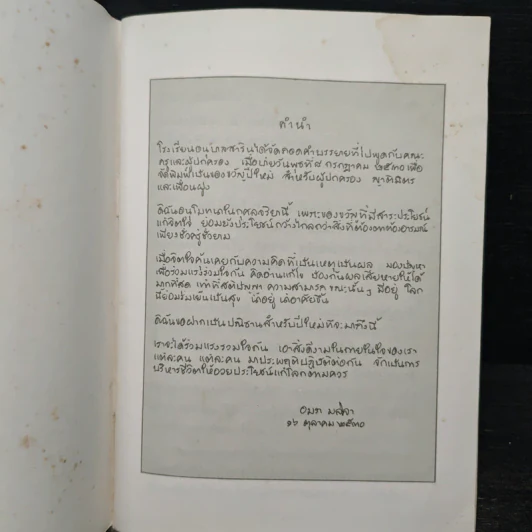 คำนำ
โรงเรียนอนุบาลสารินได้จัดถอดคำบรรยายที่ไปพูดกับคณะ
ครูและผู้ปกครอง เมื่อบ่ายวันพุธที่ ๘ กรกฎาคม ๒๕๓๐ เพื่อ
จัดพิมพ์เป็นของขวัญปีใหม่ สำหรับผู้ปกครอง ญาติมิตร
และเพื่อนฝูง
ดิฉันอนุโมทนาในกุศลจริยานี้ เพราะของขวัญที่มีสาระประโยชน์
แก่จิตใจ ย่อมยังประโยชน์กว้างไกลกว่าสิ่งที่ต้องตาต้องอารมณ์
เพียงชั่วครู่ชั่วยาม
เมื่อจิตใจคุ้นเคยกับความคิดที่เป็นเหตุเป็นผล มองปัญหา
เพื่อร่วมแรงร่วมใจกัน คิดอ่านแก้ไข ป้องกันผลเสียหายให้ได้
มากที่สุด เท่าที่สติปัญญา ความสามารถ ขณะนั้นๆ มีอยู่ โลก
นี้ย่อมร่มเย็นเป็นสุข ได้อยู่ ได้อาศัยขึ้น
ดิฉันขอฝากเป็นปณิธานสำหรับปีใหม่ที่จะมาถึงนี้
เราจะได้ร่วมแรงรวมใจกัน เอาสิ่งดีงามในภายในใจของเรา
แต่ละคน แต่ละคน มาประพฤติปฏิบัติต่อกัน จักเป็นการ
บริหารชีวิตให้อวยประโยชน์แก่โลกตามควร
อมรา มลิลา
๑๖ ตุลาคม ๒๕๓๐